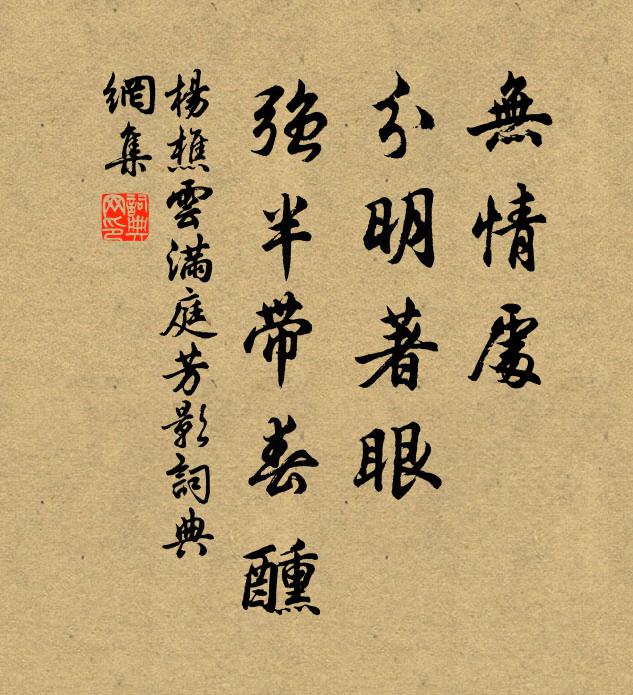 無情處
分明著眼
強半帶春醺
楊樵雲滿庭芳影詞典
網集
詞典
网印